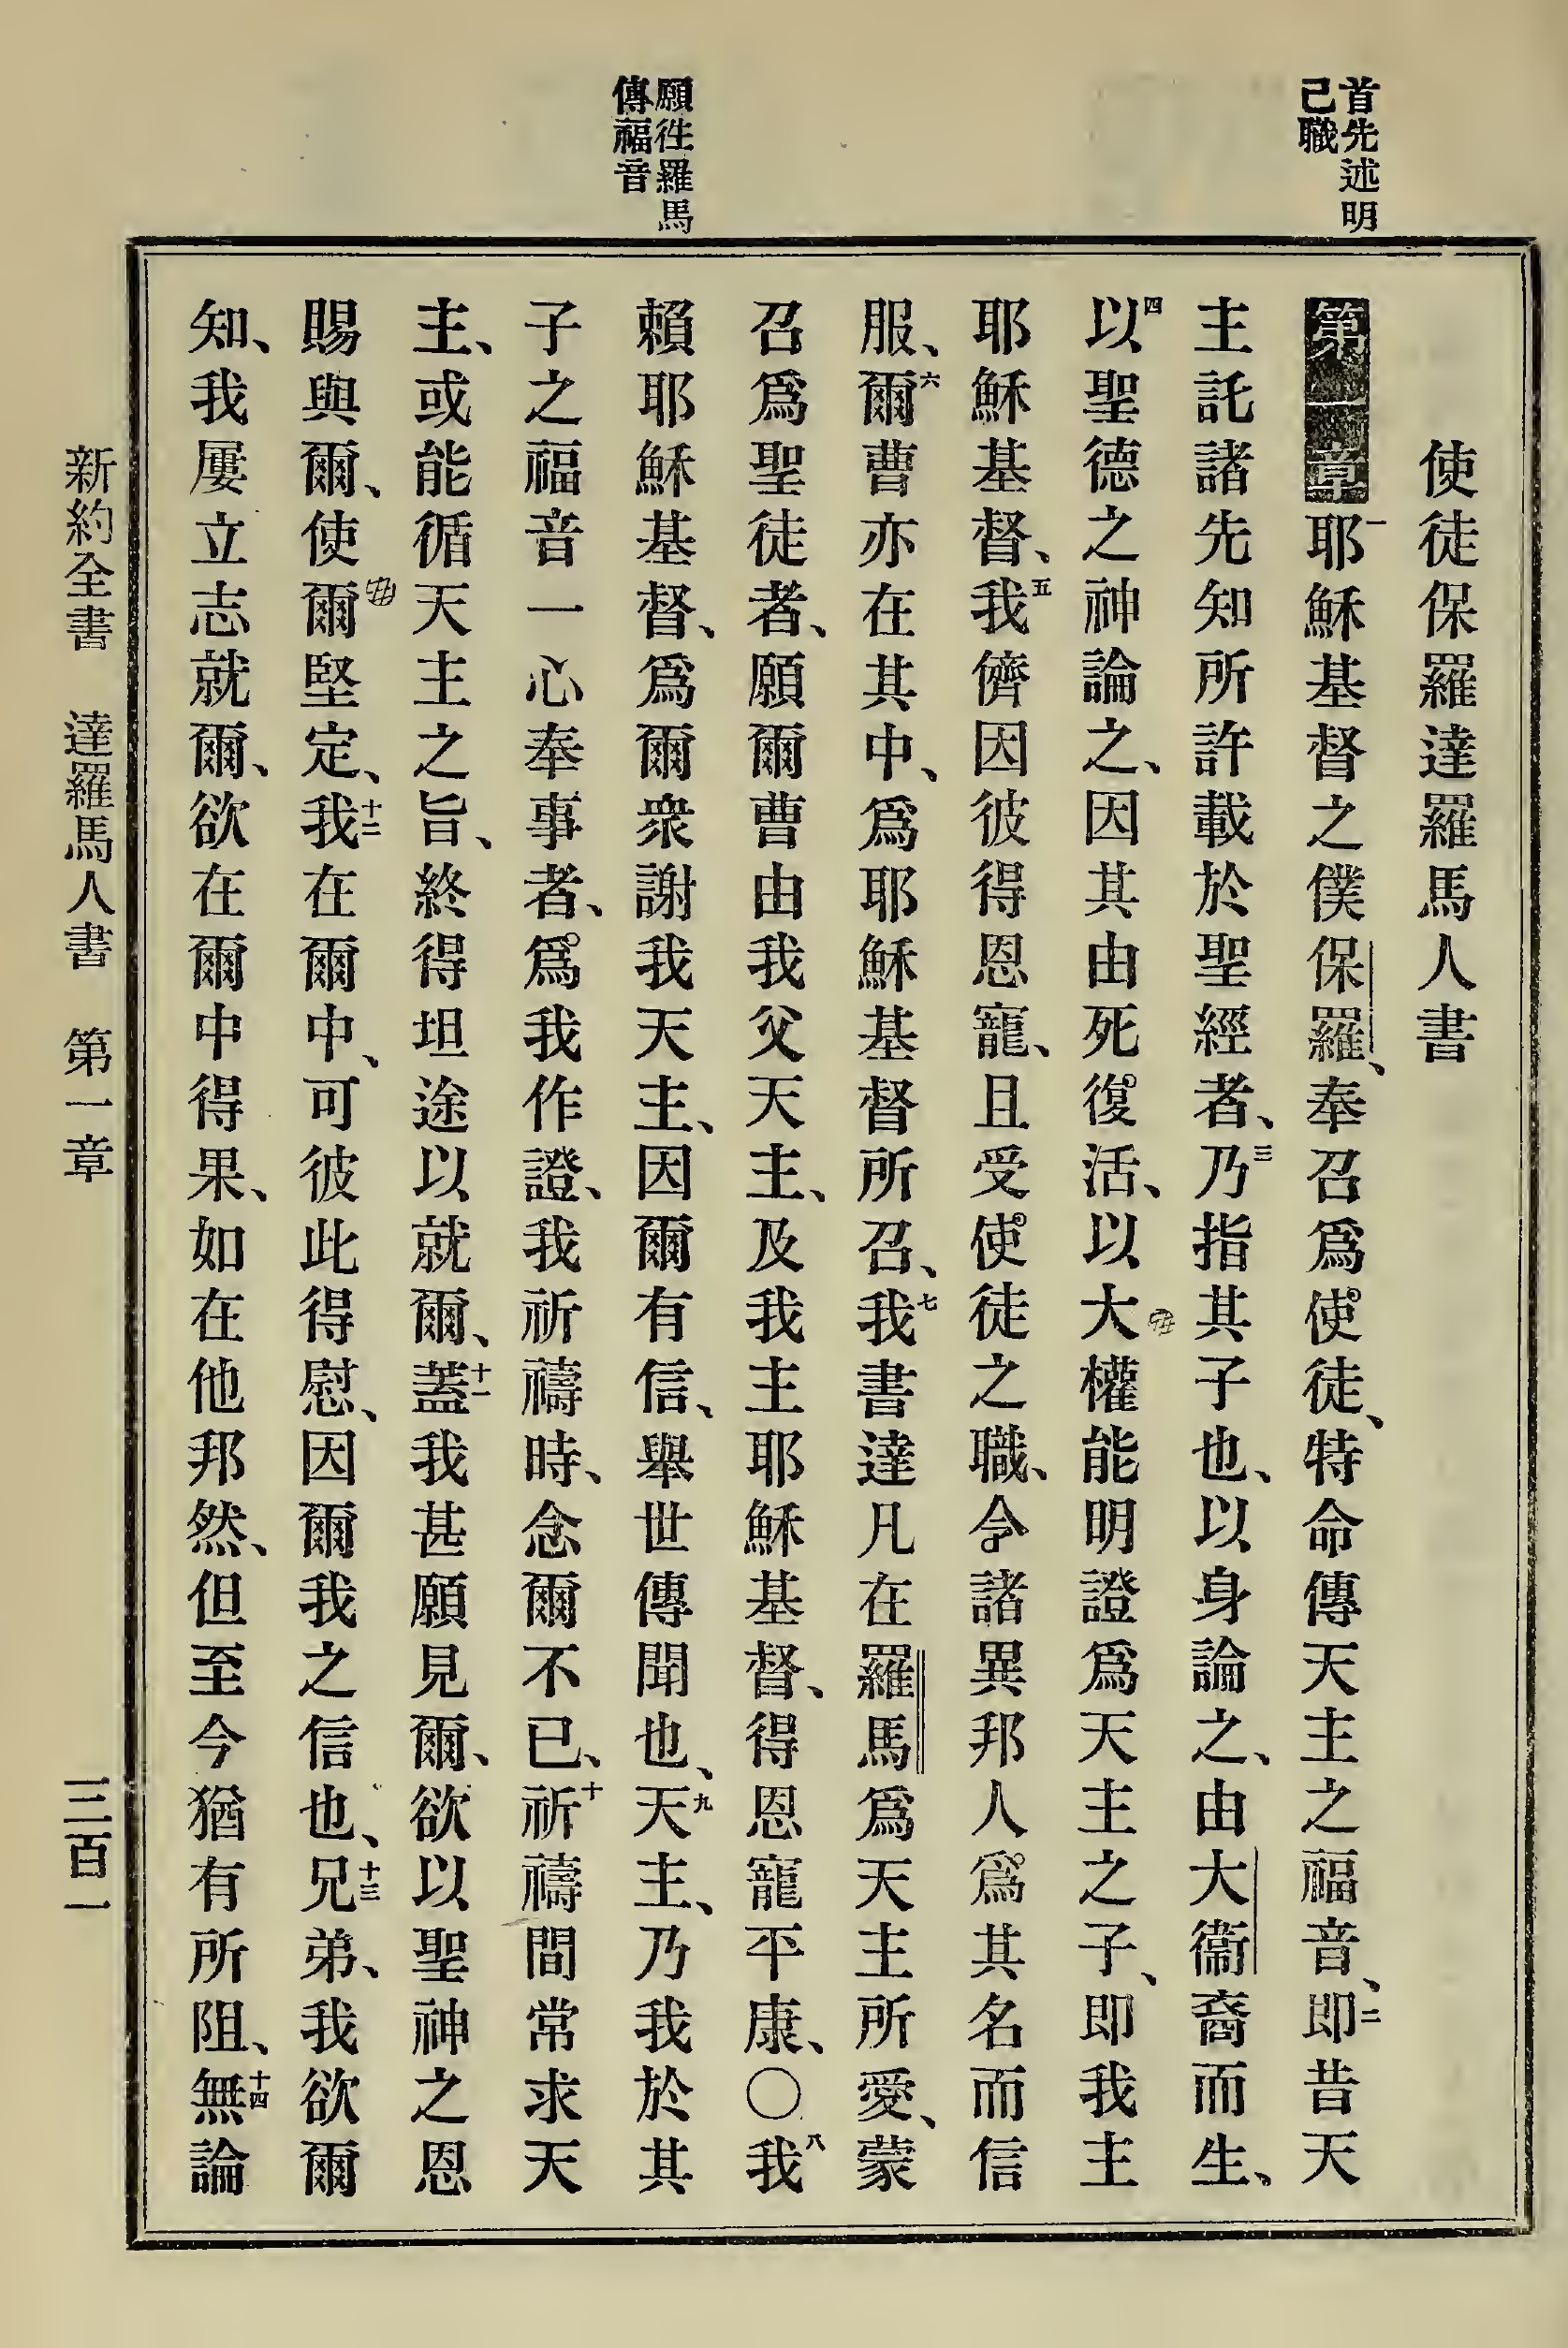 首先述明
己職
願徃羅馬
傳福音
使徒保羅達羅馬人書
第一章一耶穌基督之僕保羅、奉召爲使徒、特命傳天主之福音、二即昔天
主託諸先知所許載於聖經者、三乃指其子也、以身論之、由大衞裔而生、
四以聖德之神論之、因其由死復活、以大權能明證爲天主之子、即我主
耶穌基督、五我儕因彼得恩寵、且受使徒之職、令諸異邦人爲其名而信
服、六爾曹亦在其中、爲耶穌基督所召、七我書達凡在羅馬爲天主所愛、蒙
召爲聖徒者、願爾曹由我父天主、及我主耶穌基督、得恩寵平康、〇八我
賴耶穌基督、爲爾衆謝我天主、因爾有信、舉世傳聞也、九天主、乃我於其
子之福音一心奉事者、爲我作證、我祈禱時、念爾不已、十祈禱間常求天
主、或能循天主之旨、終得坦途以就爾、十一蓋我甚願見爾、欲以聖神之恩
賜與爾、使爾堅定、十二我在爾中、可彼此得慰、因爾我之信也、十三兄弟、我欲爾
知、我屢立志就爾、欲在爾中得果、如在他邦然、但至今猶有所阻、十四無論
新約全書 達羅馬人書 第一章 三百一